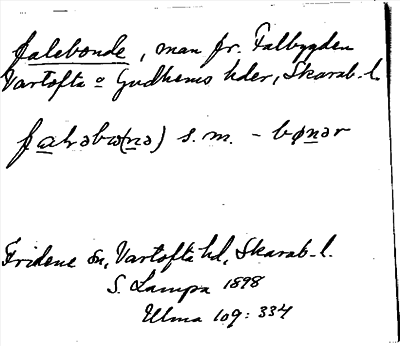 falebonde, man fr. Falbygden
Vartofta o Gudhems hder, Skarab.l.
s.m. - bønər
Fridene sn, Vartofta hd, Skarab.l.
S. Lampa 1898
Ulma 109: 334